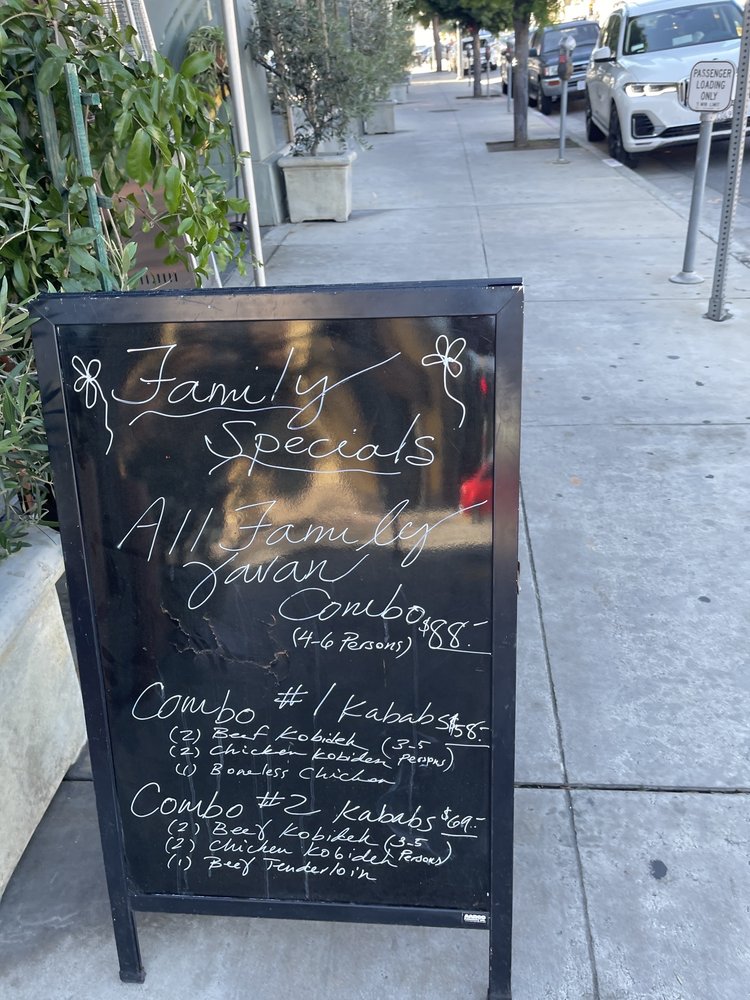 PASSENGER
LOADING
ONLY
Family
Specials
All Family
Javan
Combo $88.-
(4-6 Persons)
Combo #1 Kababs $58.-
(2) Beef Kobideh (3-5
(2) Chicken Kobideh Persons)
(1) Boneless Chicken
Combo #2 Kababs $69.-
(2) Beef Kobideh (3-5
(2) Chicken Kobideh Persons)
(1) Beef Tenderloin